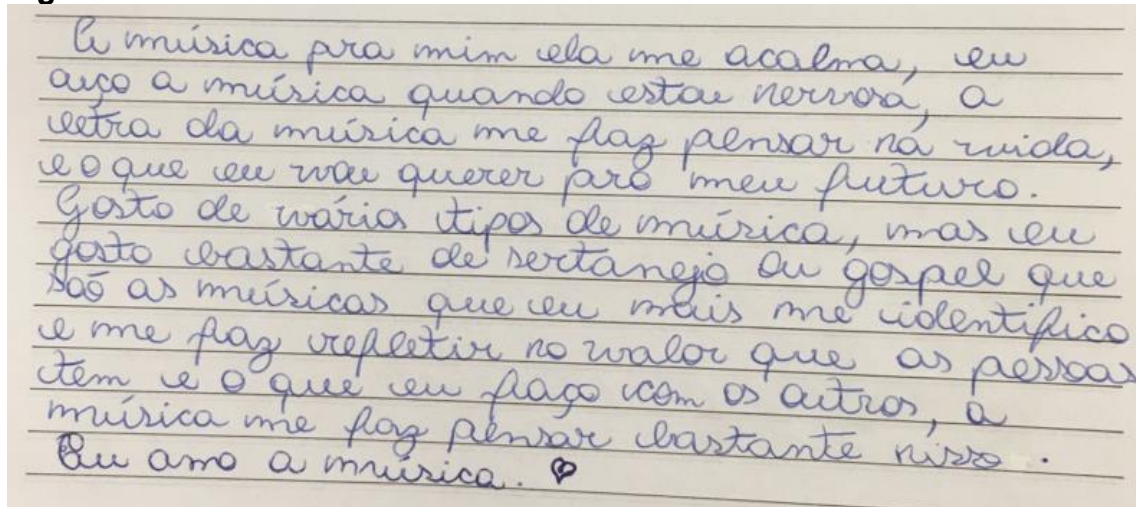 A música pra mim ela me acalma, eu
ouço a música quando estou nervosa, a
letra da música me faz pensar na vida,
e o que eu vou querer pro meu futuro.
Gosto de vários tipos de música, mas eu
gosto bastante de sertanejo ou gospel que
são as músicas que eu mais me identifico
e me faz refletir no valor que as pessoas
tem e o que eu faço com os outros, a
música me faz pensar bastante nisso.
Eu amo a música.